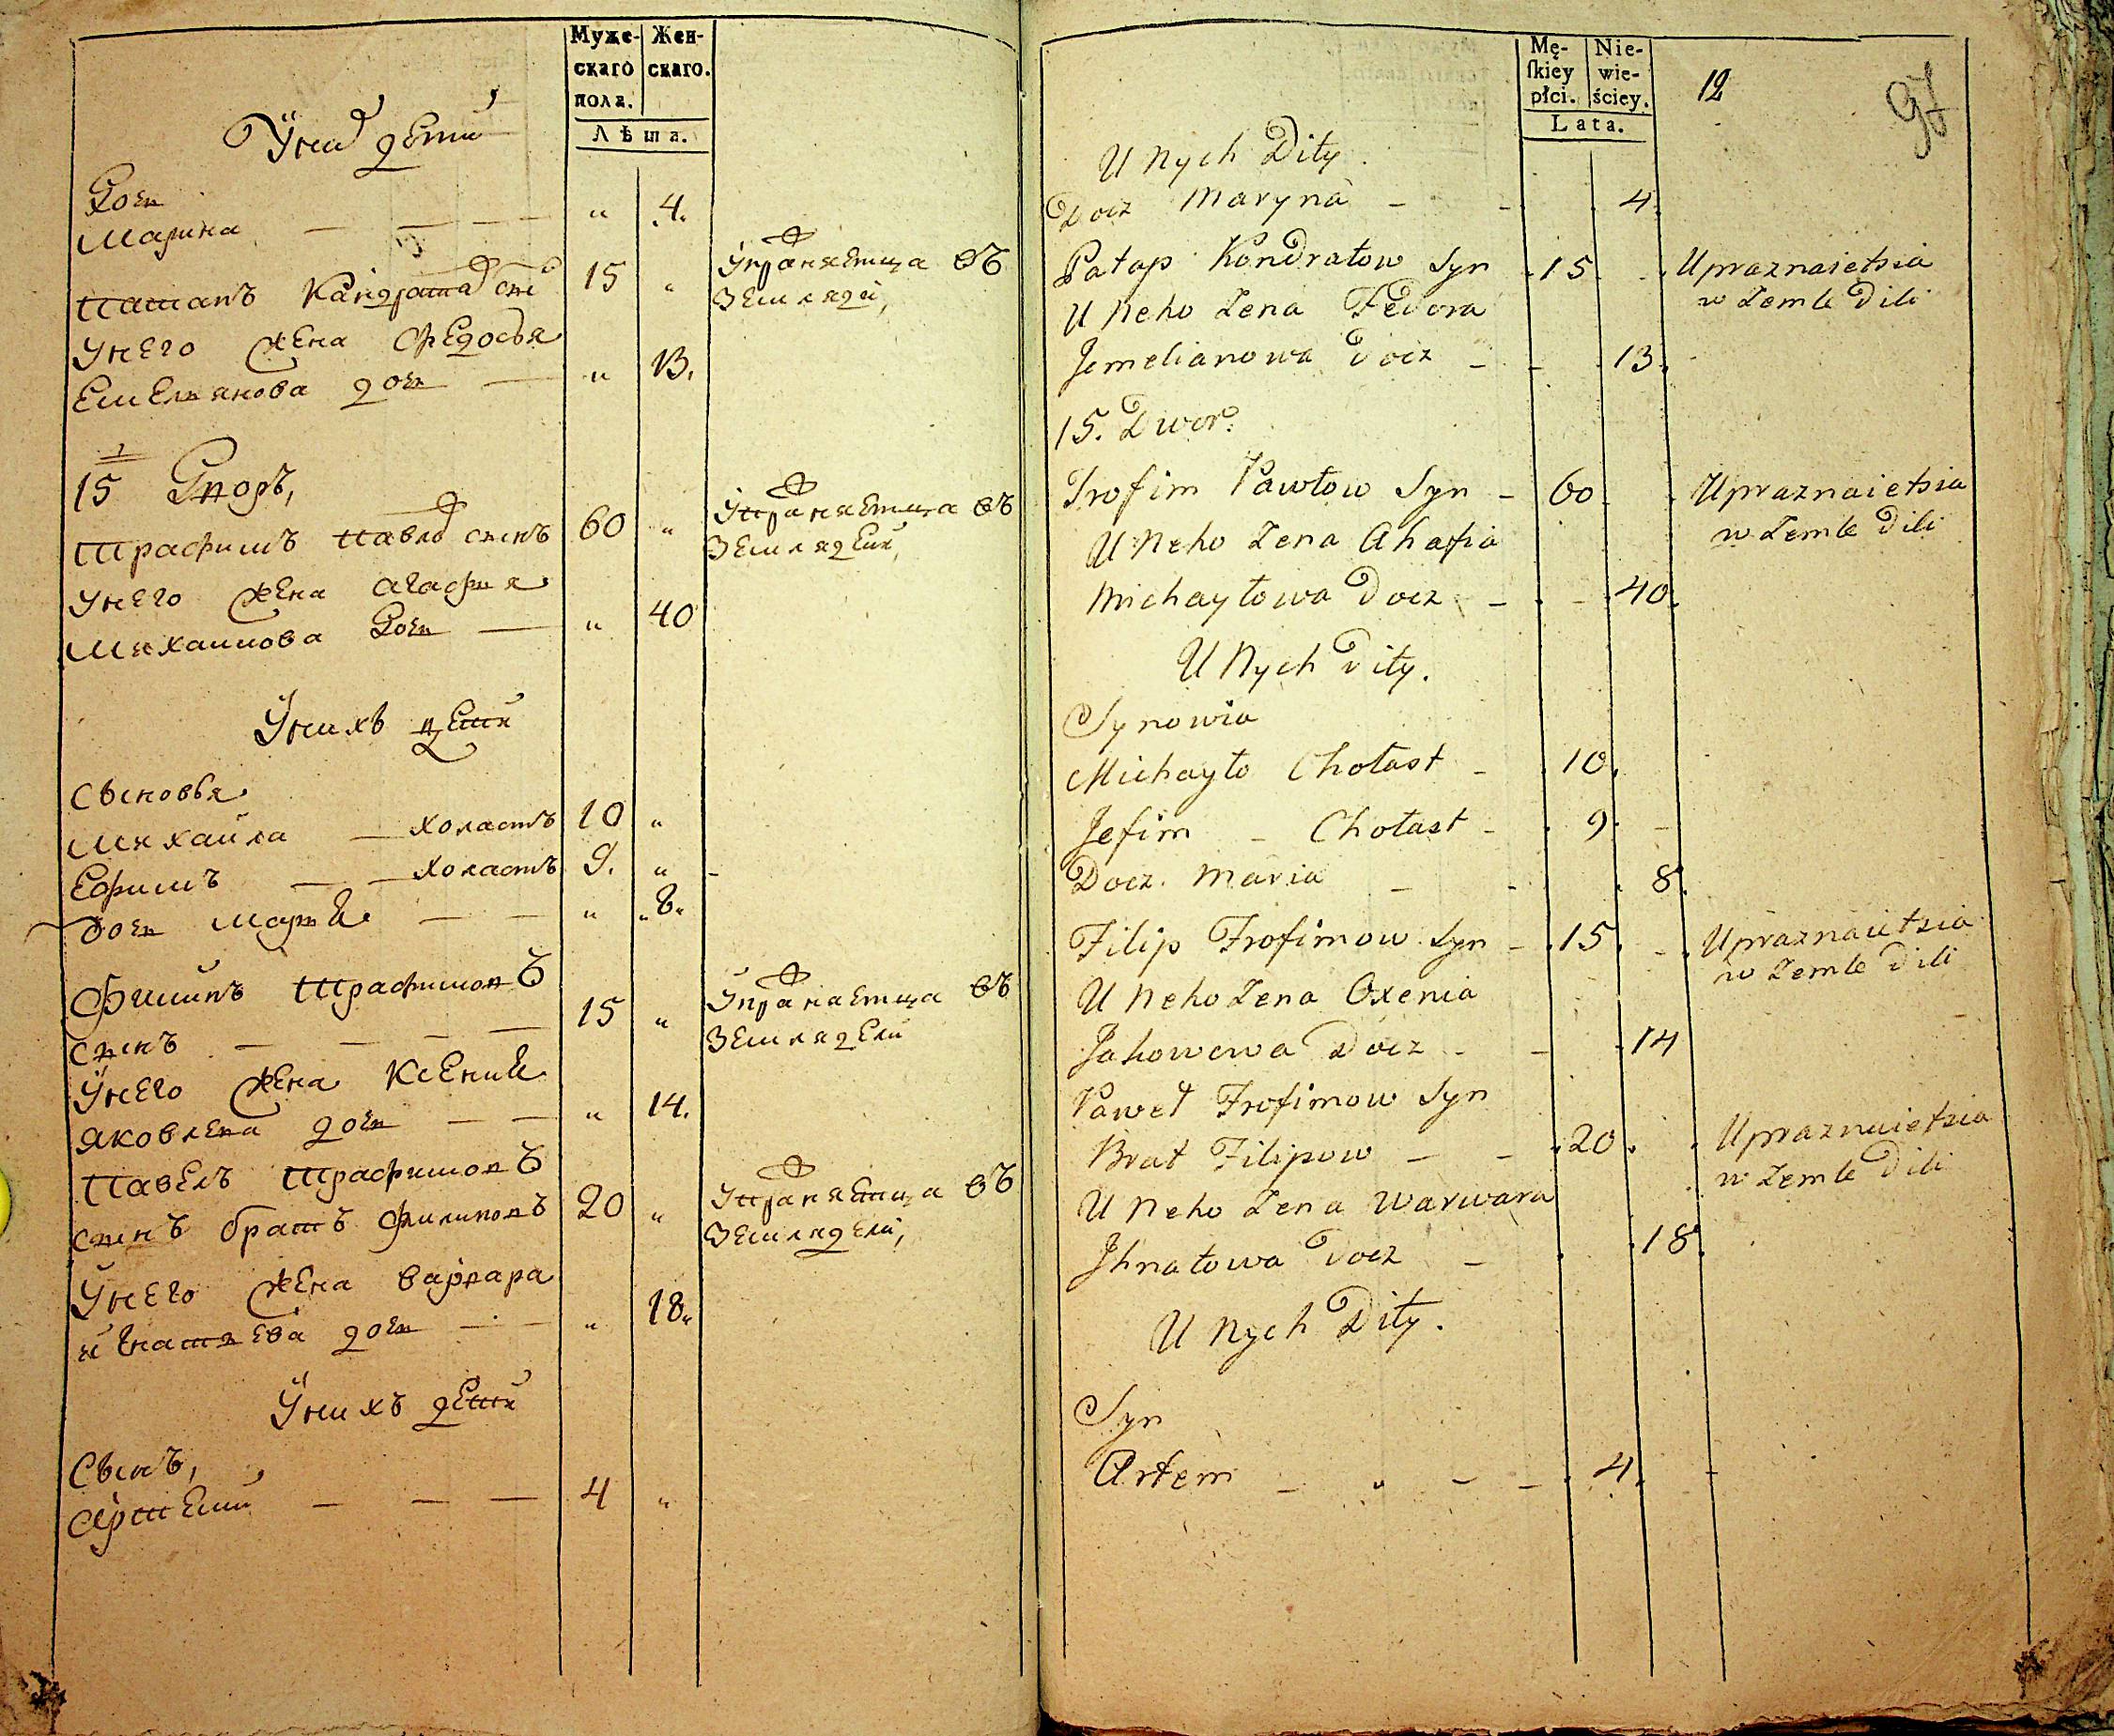 Муже-
скаго
пола.
Жен-
скаго.
Лѣта.
У них дети
Дочь
Марина — — — " 4.
Патапъ Кандрат снъ 15 " Упражняетца въ
земледели,
Унего жена Федосья
Емельянова дочь — " 13.
15 Дворъ,
Трафимъ Павлов сынъ 60 " Упражняетца въ
земледели,
Унего жена Агафия
Михаилова дочь — " 40
Унихъ дети
Сыновья
Михайла — холастъ 10 "
Ефимъ — — холастъ 9. "
дочь Мария — — " 8.
Филипъ Трафимовъ
сынъ — — — — 15 " Упражняетца въ
земледели
Унего жена Ксения
Яковлева дочь — — " 14.
Павелъ Трафимовъ
сынъ братъ Филиповъ 20 " Упражняетца въ
земледели,
Унего жена Варвара
Игнатьева дочь — — " 18.
Унихъ дети
Сынъ,
Артемий — — — 4 "
Mę-
ſkiey
płci.
Nie-
wie-
ściey.
Lata.
12
97
U Nych Dity.
Docz Maryna - - 4.
Patap Kondratow Syn 15 Upraznaietsia
w Zemle Dili
U Neho Zena Fedora
Jemelianowa Docz - - 13.
15. Dwor.
Trofim Pawłow Syn - 60 Upraznaietsia
w Zemle Dili
U Neho Zena Ahafia
Michayłowa Docz - - 40.
U Nych Dity.
Synowia
Michayło Chołast - 10.
Jefim - Chołast - 9. -
Docz. Maria - - 8.
Filip Trofimow Syn - 15. - Upraznaietsia
w Zemle Dili
U Neho Zena Oxenia
Jakowewa Docz - - 14
Paweł Trofimow Syn
Brat Filipow - - 20. Upraznaietsia
w Zemle Dili
U Neho Zena Warwara
Jhnatowa Docz - 18.
U Nych Dity.
Syn
Artem - - - - 4. -